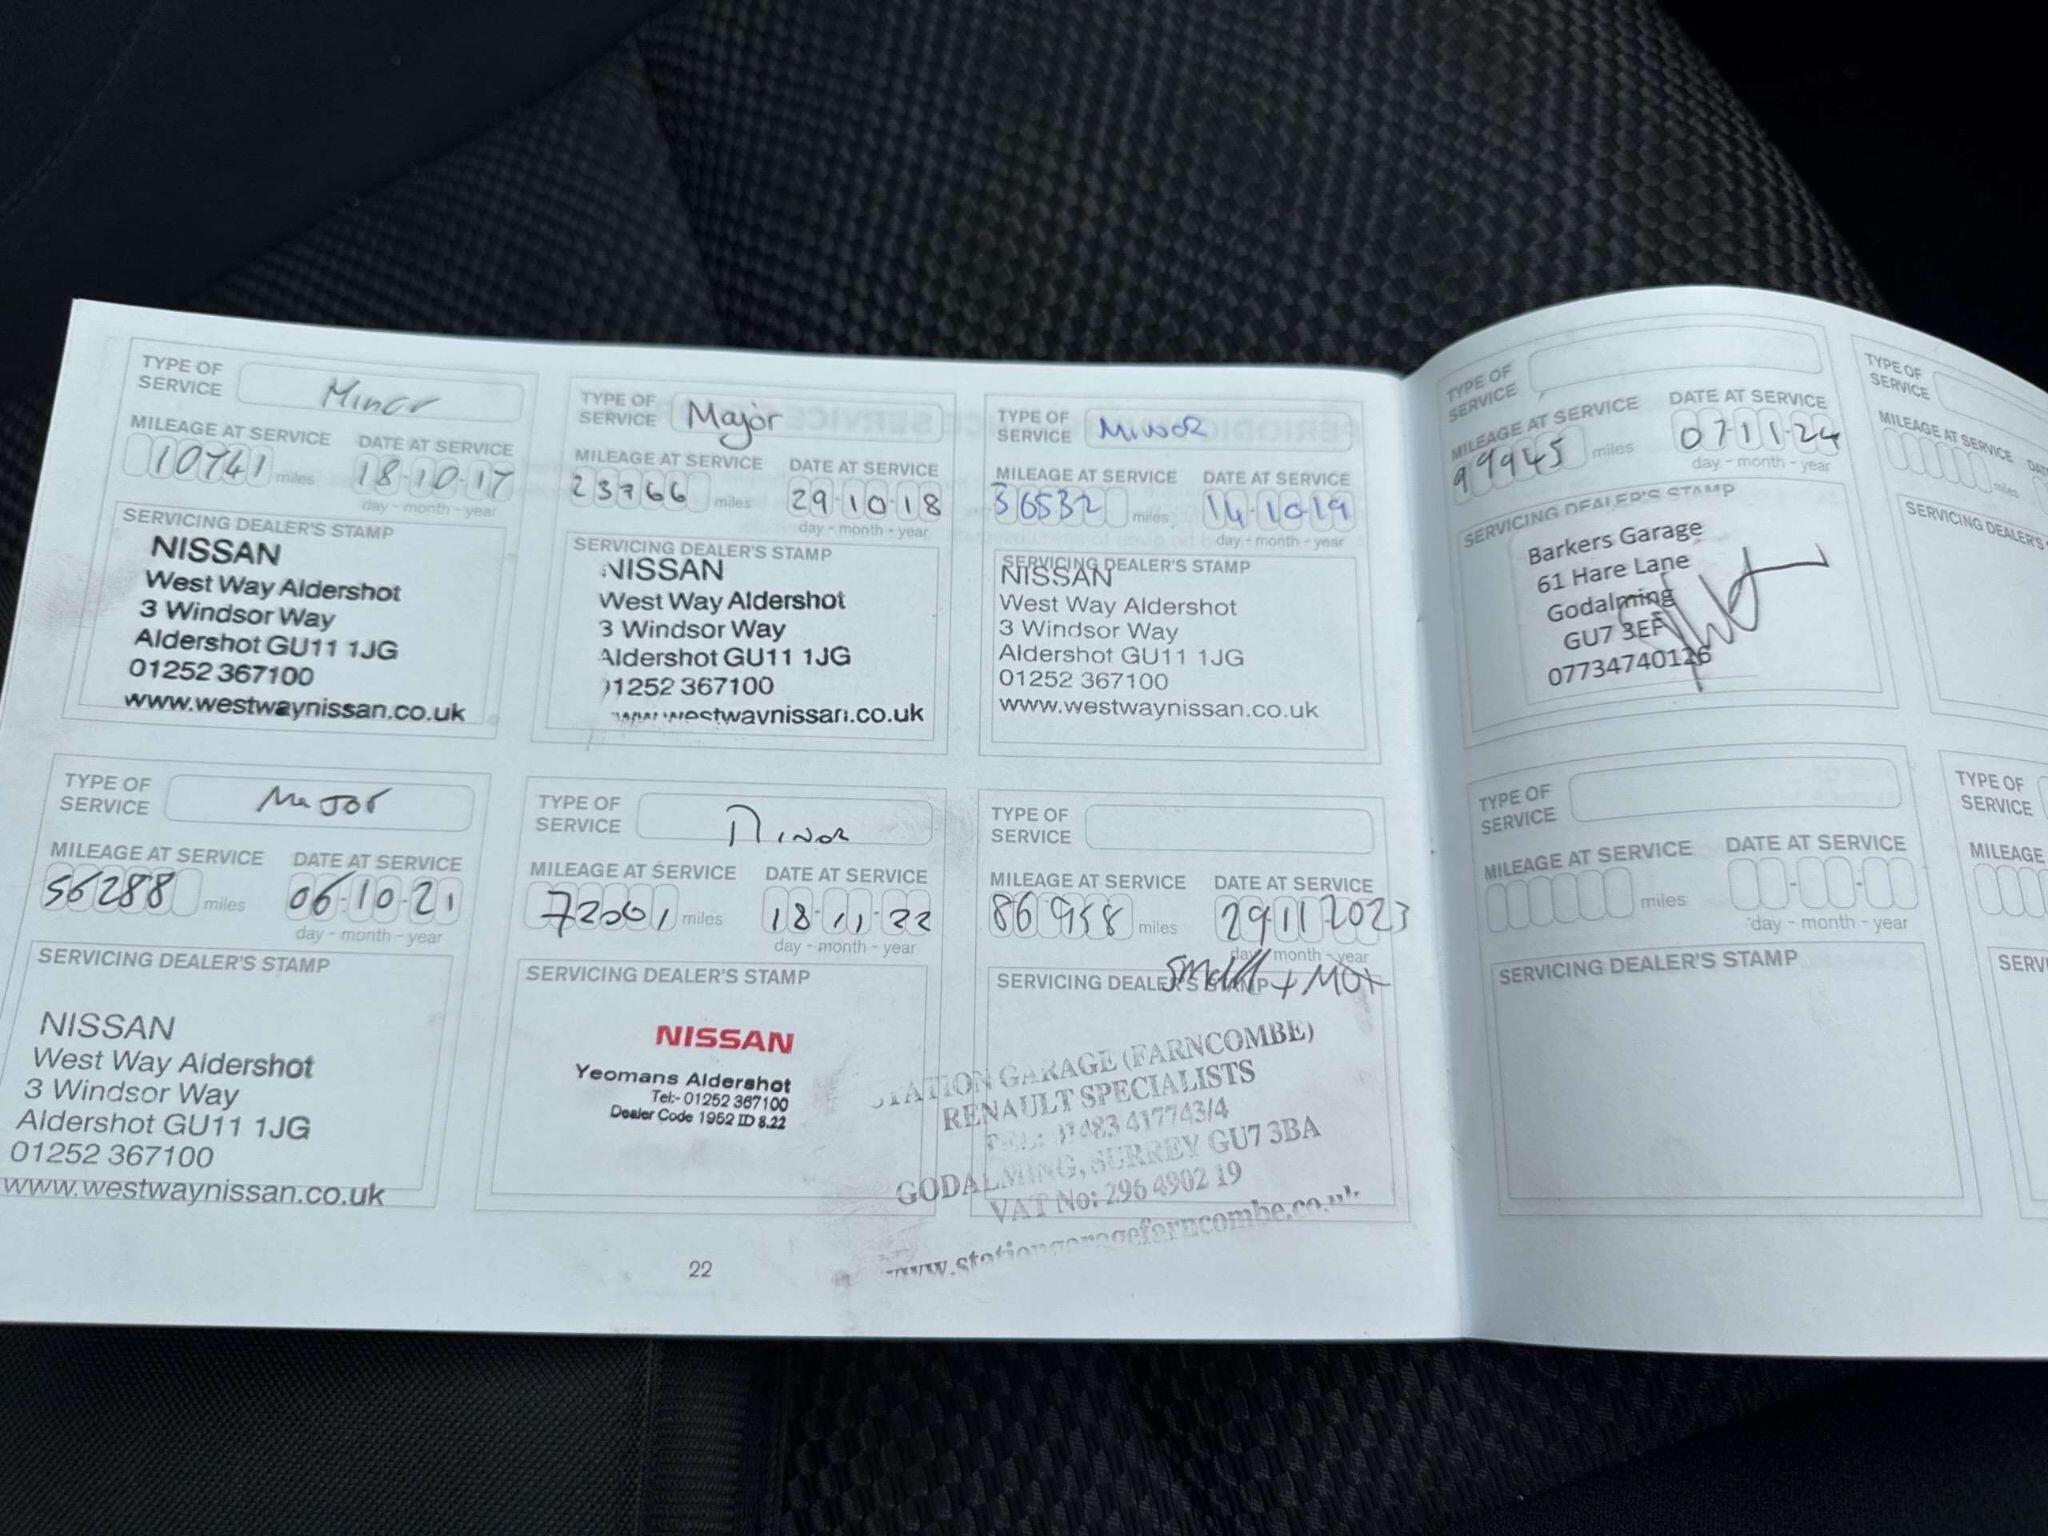 TYPE OF SERVICE Minor
MILEAGE AT SERVICE DATE AT SERVICE
10741 miles 18-10-17
day - month - year
SERVICING DEALER'S STAMP
NISSAN
West Way Aldershot
3 Windsor Way
Aldershot GU11 1JG
01252 367100
www.westwaynissan.co.uk
TYPE OF SERVICE Major
MILEAGE AT SERVICE DATE AT SERVICE
23766 miles 29-10-18
day - month - year
SERVICING DEALER'S STAMP
NISSAN
West Way Aldershot
3 Windsor Way
Aldershot GU11 1JG
01252 367100
www.westwaynissan.co.uk
TYPE OF SERVICE MINOR
MILEAGE AT SERVICE DATE AT SERVICE
36532 miles 14-10-19
day - month - year
SERVICING DEALER'S STAMP
NISSAN
West Way Aldershot
3 Windsor Way
Aldershot GU11 1JG
01252 367100
www.westwaynissan.co.uk
TYPE OF SERVICE MAJOR
MILEAGE AT SERVICE DATE AT SERVICE
56288 miles 06-10-21
day - month - year
SERVICING DEALER'S STAMP
NISSAN
West Way Aldershot
3 Windsor Way
Aldershot GU11 1JG
01252 367100
www.westwaynissan.co.uk
TYPE OF SERVICE Minor
MILEAGE AT SERVICE DATE AT SERVICE
72001 miles 18-11-22
day - month - year
SERVICING DEALER'S STAMP
NISSAN
Yeomans Aldershot
Tel:- 01252 367100
Dealer Code 1952 ID 8.22
TYPE OF SERVICE
MILEAGE AT SERVICE DATE AT SERVICE
86958 miles 29-11-2023
day - month - year
Small + MOT
SERVICING DEALER'S STAMP
STATION GARAGE (FARNCOMBE)
RENAULT SPECIALISTS
TEL: 01483 417743/4
GODALMING, SURREY GU7 3BA
VAT No: 296 4902 19
www.stationgaragefarncombe.co.uk
22
TYPE OF SERVICE
MILEAGE AT SERVICE DATE AT SERVICE
99945 miles 07-11-24
day - month - year
SERVICING DEALER'S STAMP
Barkers Garage
61 Hare Lane
Godalming
GU7 3EF
07734740126
TYPE OF SERVICE
MILEAGE AT SERVICE
miles
SERVICING DEALER'S
TYPE OF SERVICE
MILEAGE AT SERVICE DATE AT SERVICE
miles
day - month - year
SERVICING DEALER'S STAMP
TYPE OF SERVICE
MILEAGE